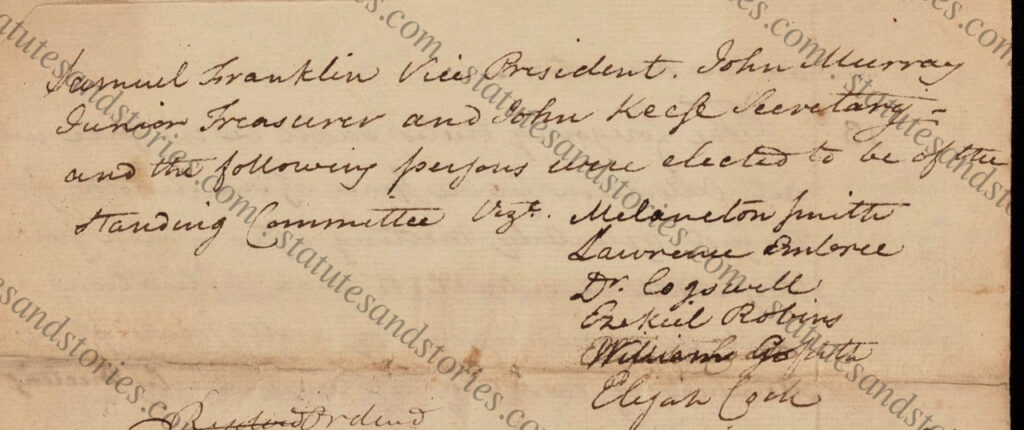 Samuel Franklin Vice President. John Murray
Junior Treasurer and John Keese Secretary -
and the following persons were elected to be of the
standing Committee Vizt. Melancton Smith
Lawrence Embree
Dr. Cogswell
Ezekiel Robins
William
Elijah Cock
Ordered
statutesandstories.com